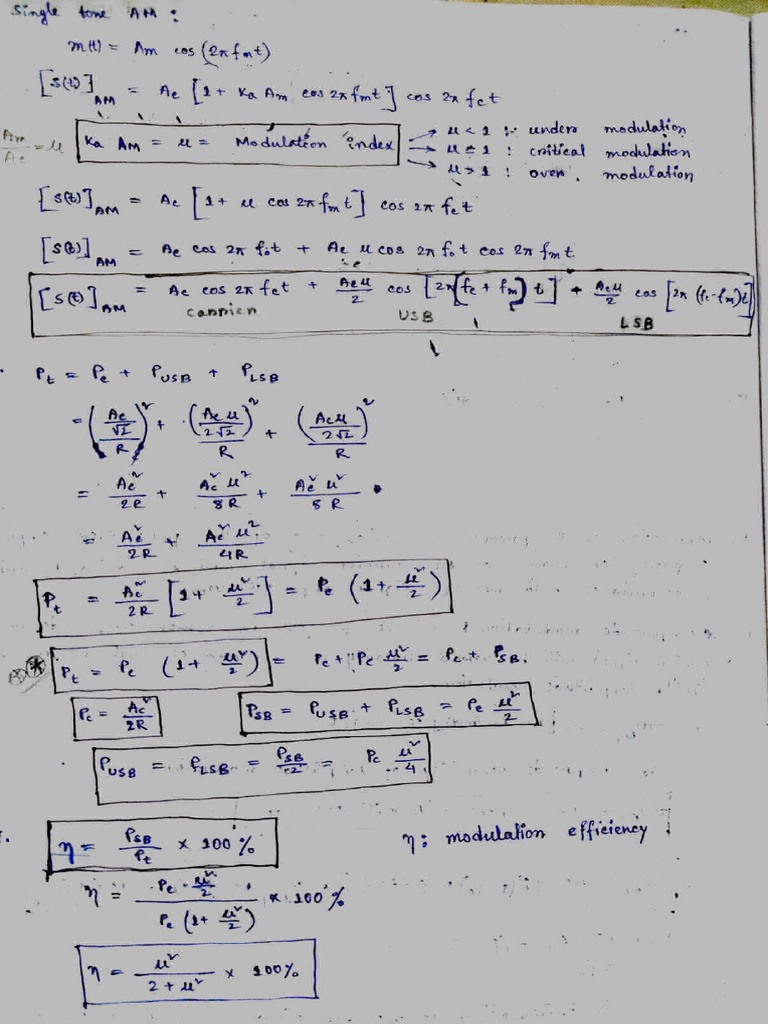 Single tone AM :
m(t) = Am cos (2π fmt)
[S(t)]AM = Ac [1 + Ka Am cos 2π fmt] cos 2π fct
Am/Ac = μ
Ka AM = μ = Modulation index
μ < 1 : under modulation
μ = 1 : critical modulation
μ > 1 : over modulation
[S(t)]AM = Ac [1 + μ cos 2π fmt] cos 2π fct
[S(t)]AM = Ac cos 2π fct + Ac μ cos 2π fct cos 2π fmt
[S(t)]AM = Ac cos 2π fct + Acμ/2 cos [2π(fc + fm) t] + Acμ/2 cos [2π (fc-fm)t]
carrier USB LSB
Pt = Pc + PUSB + PLSB
= (Ac/√2)²/R + (Ac μ/2√2)²/R + (Acμ/2√2)²/R
= Ac²/2R + Ac² μ²/8R + Ac² μ²/8R
= Ac²/2R + Ac² μ²/4R
Pt = Ac²/2R [1 + μ²/2] = Pc (1 + μ²/2)
Pt = Pc (1 + μ²/2) = Pc + Pc μ²/2 = Pc + PSB.
Pc = Ac²/2R
PSB = PUSB + PLSB = Pc μ²/2
PUSB = PLSB = PSB/2 = Pc μ²/4
η = PSB/Pt × 100%
η : modulation efficiency
η = Pc · μ²/2 / Pc (1 + μ²/2) × 100%
η = μ²/2 + μ² × 100%